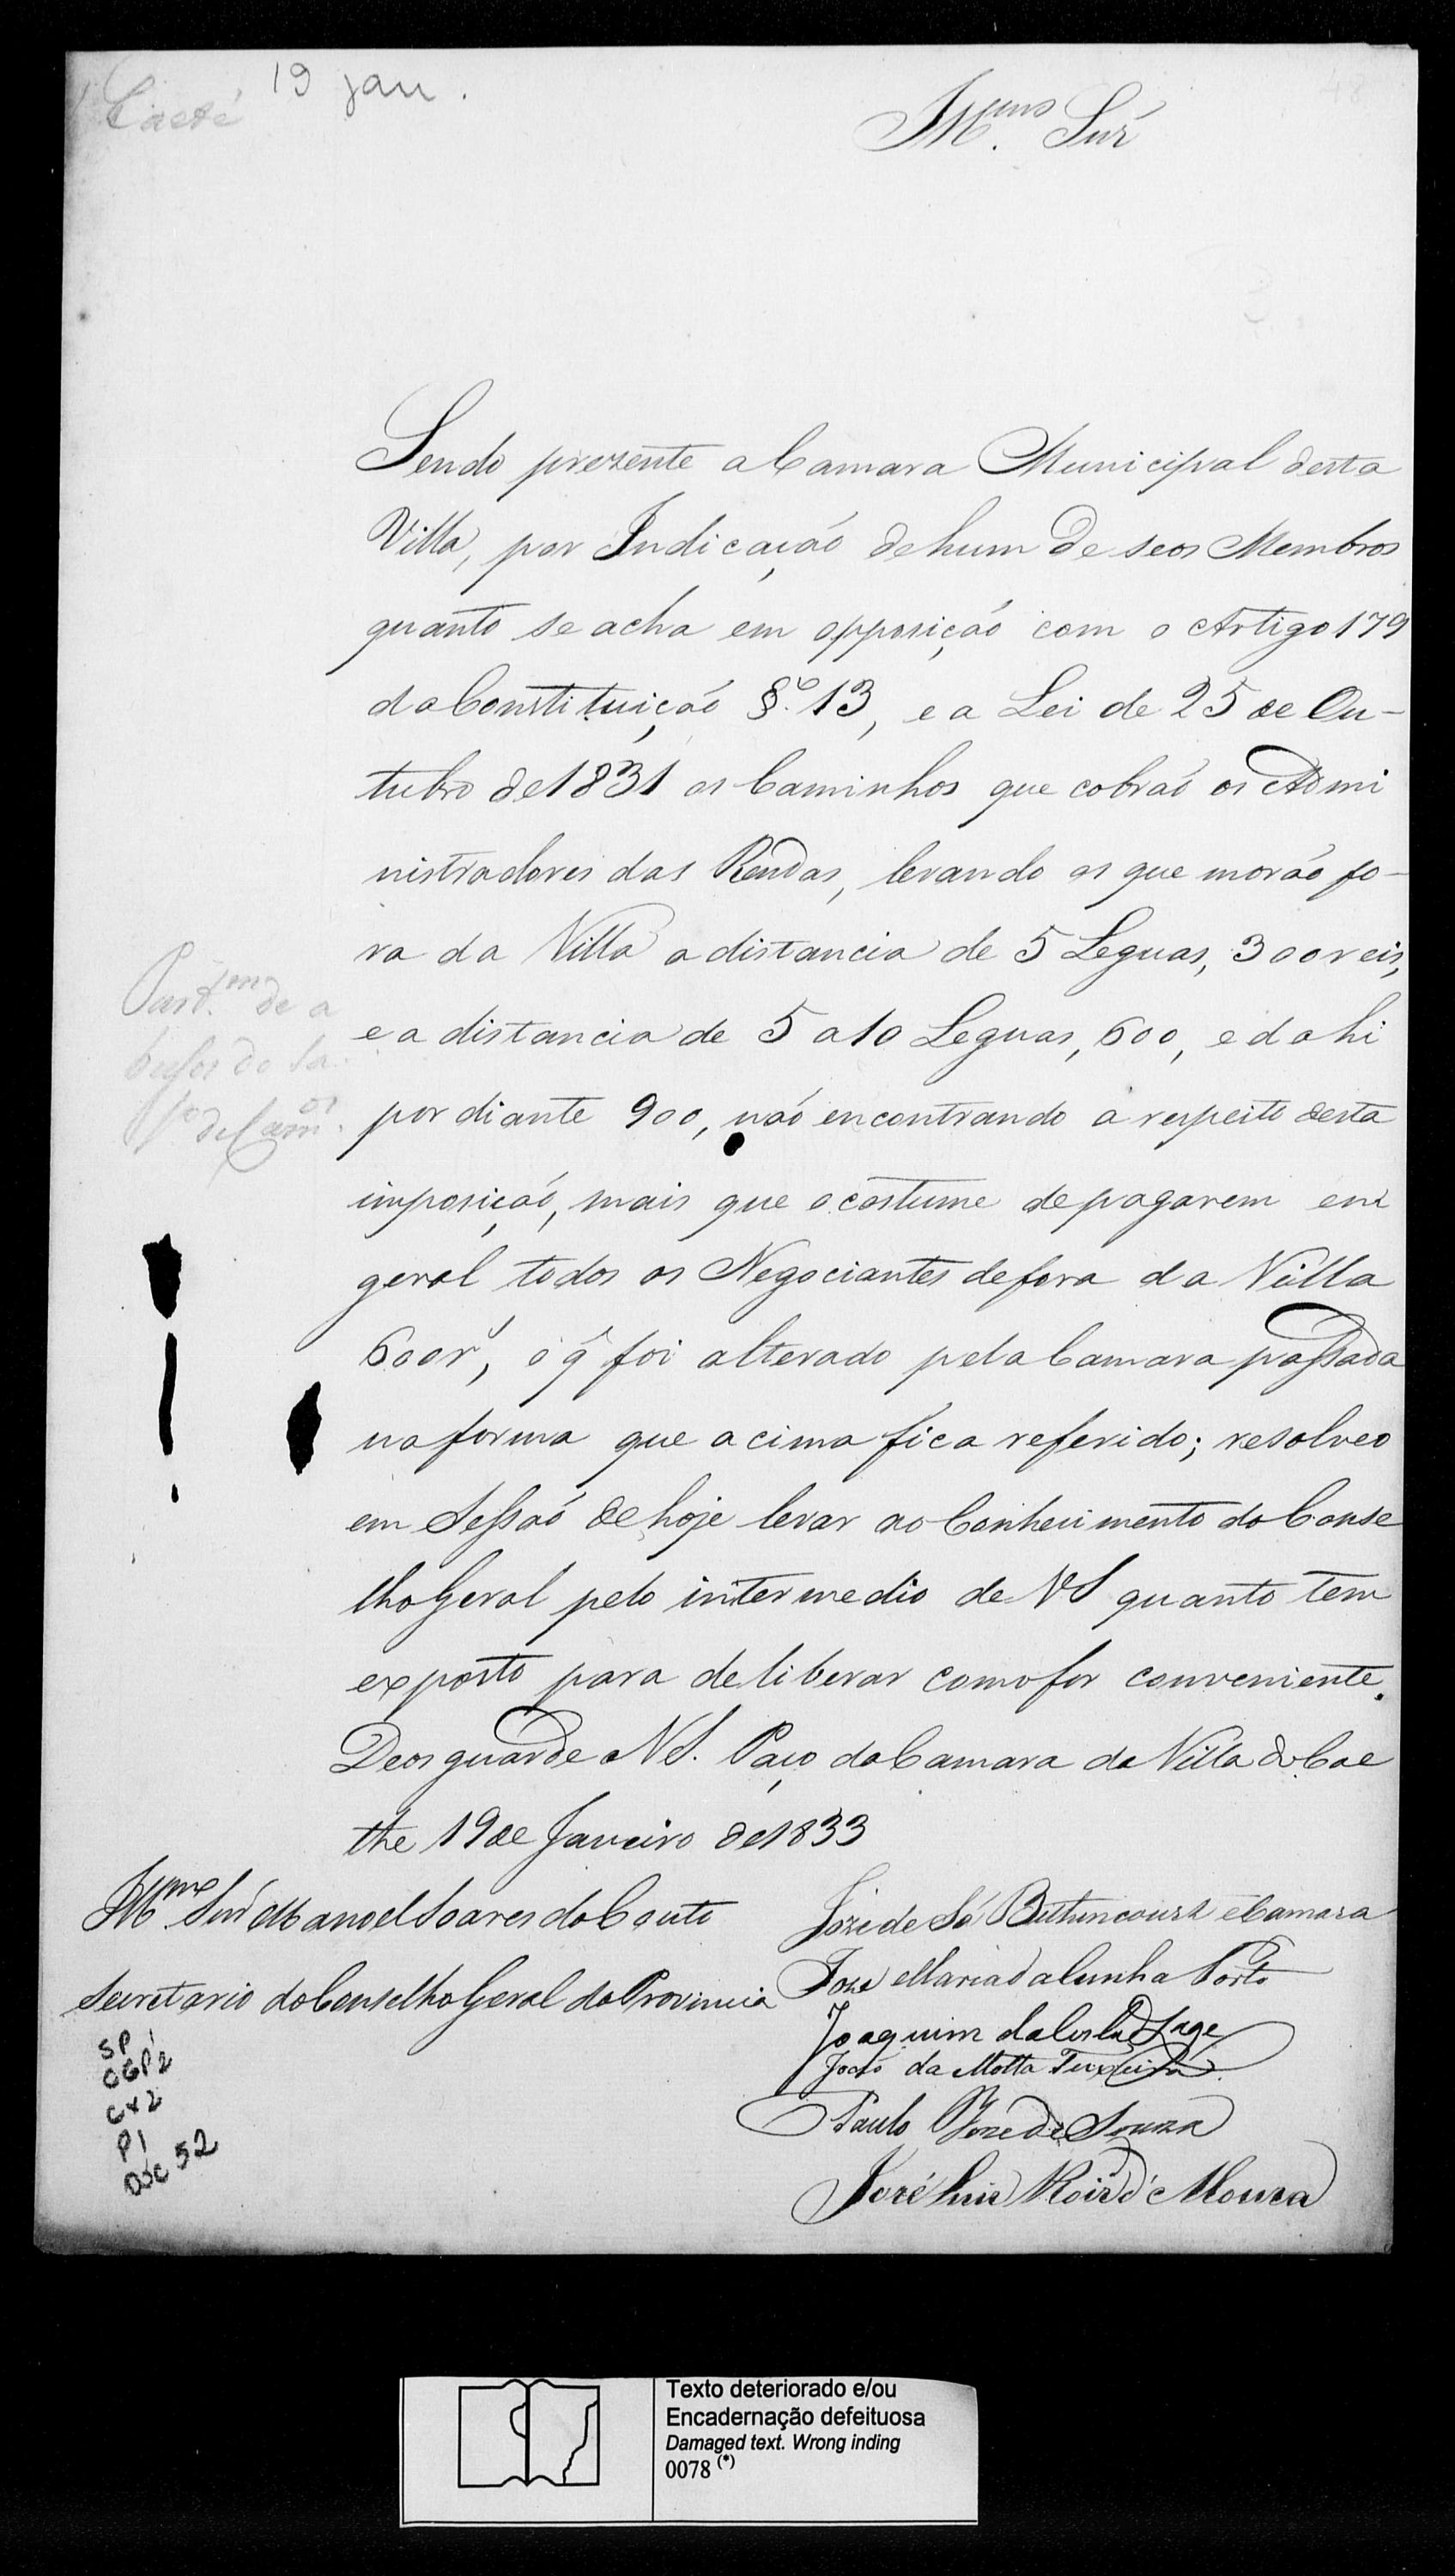 Caeté
19 jan.
Illmo. Snr
Sendo prezente a Camara Municipal desta
Villa, por Indicação de hum de seos Membros
quanto se acha em opposição com o Artigo 179
da Constituição §º. 13, e a Lei de 25 de Ou-
tubro de 1831 os Caminhos que cobraõ os Admi
nistradores das Rendas, levando os que moraõ fo-
ra da Villa a distancia de 5 Leguas, 300 reis,
e a distancia de 5 a 10 Leguas, 600, e d'ahi
por diante 900, naõ encontrando a respeito desta
imposiçaõ, mais que o costume de pagarem em
geral todos os Negociantes de fora da Villa
600 r̃, o q̃ foi alterado pela Camara passada
na forma que acima fica referido; resolveo
em Sessaõ de hoje levar ao Conhecimento do Conse
lho Geral pelo intermedio de VS quanto tem
exposto para deliberar como for conveniente.
Deos guarde a VS. Paço da Camara da Villa do Cae
the 19 de Janeiro de 1833
Illmo Snr Manoel Soares do Couto
Secretario do Conselho Geral da Provincia
Joze de Sá Bithancourt e Camara
Joze Maria da Cunha Porto
Joaquim da Costa Lage
João da Motta Teixeira
Paulo Joze de Souza
José Luis Roiz d' Moura
Part. de a
de Cam.os
SP 1
CGP 2
CX 2
P 1
DOC 52
Texto deteriorado e/ou
Encadernação defeituosa
Damaged text. Wrong inding
0078 (*)